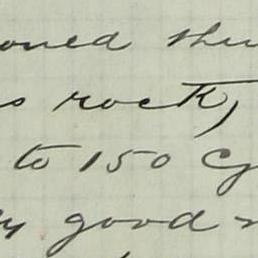 oned the
s rock,
to 150 Cy
y good